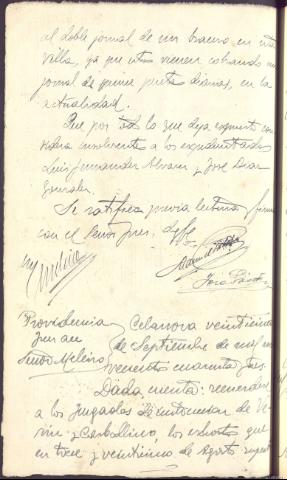 al doble jornal de un bracero en esta
villa, ya que estos vienen cobrando un
jornal de quince pesetas diarias, en la
actualidad.
Que por todo lo que deja expuesto con
sidera insolvente a los expedientados
Luis Fernandez Alvarez y José Diaz
Gonzalez.
Se ratifica previa lectura y firma
con el Señor Juez: doy fe.
Providencia
Juez
Señor Meleiro
Celanova veintinueve
de Septiembre de mil no
vecientos cuarenta y tres.
Dada cuenta: recuerdese
a los Juzgados de instrucción de Ve
rin y Carballino, los exhortos que
en trece y veintiuno de Agosto